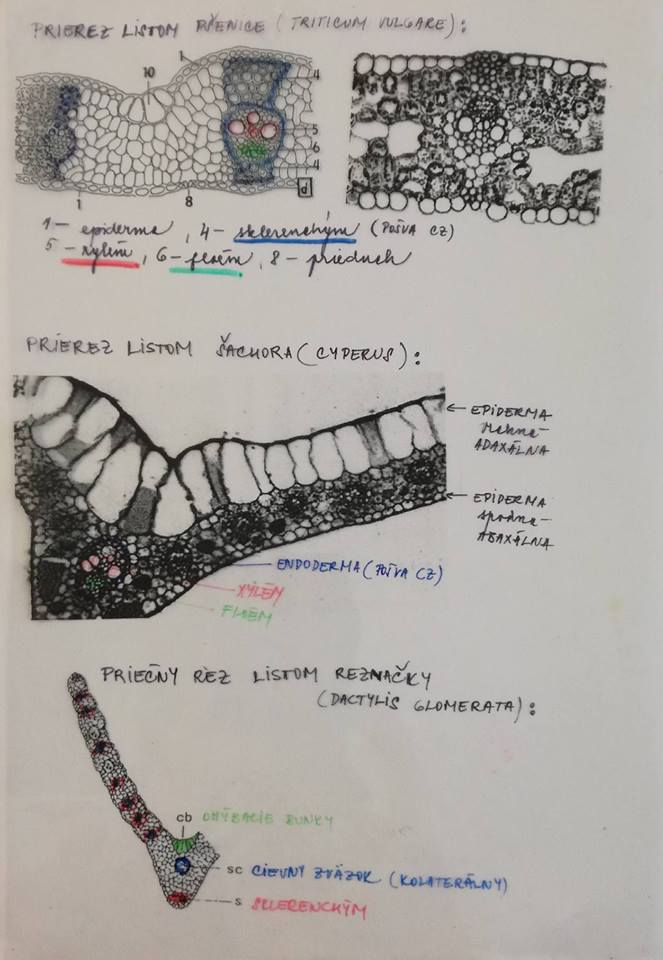 PRIEREZ LISTOM PŠENICE (TRITICUM VULGARE):
1
10
4
5
6
4
d
1
8
1 – epiderma, 4 – sklerenchým (POŠVA CZ)
5 – xylém, 6 – floém, 8 – prieduch
PRIEREZ LISTOM ŠACHORA (CYPERUS):
← EPIDERMA
vrchná –
ADAXÁLNA
← EPIDERMA
spodná –
ABAXÁLNA
ENDODERMA (POŠVA CZ)
XYLÉM
FLOÉM
PRIEČNY REZ LISTOM REZNAČKY
(DACTYLIS GLOMERATA):
cb OHÝBACIE BUNKY
sc CIEVNY ZVÄZOK (KOLATERÁLNY)
s SKLERENCHÝM